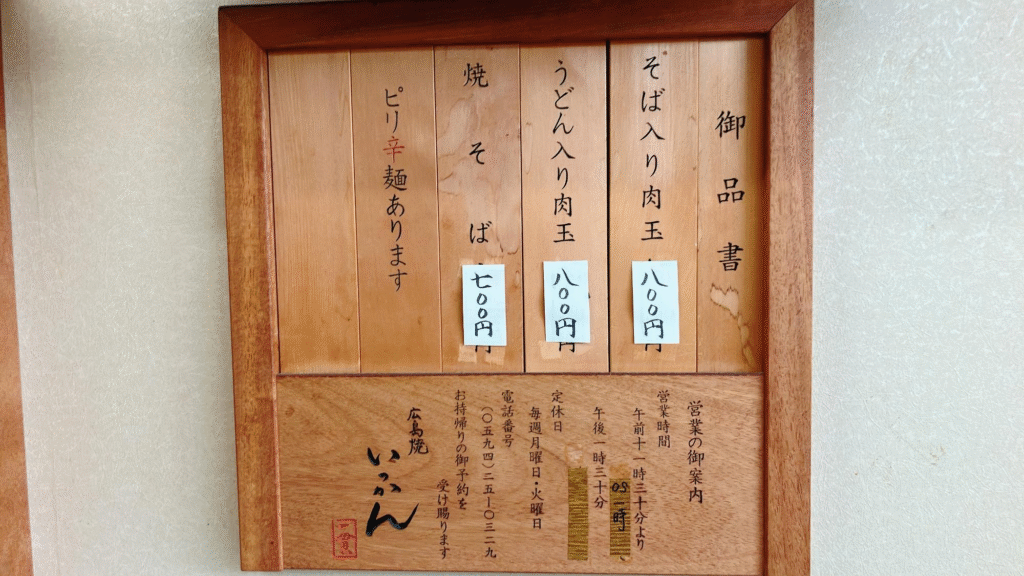 御品書
そば入り肉玉
八〇〇円
うどん入り肉玉
八〇〇円
焼そば
七〇〇円
ピリ辛麺あります
営業の御案内
営業時間
午前十一時三十分より
午後一時三十分
定休日
毎週月曜日・火曜日
電話番号
(〇五九四)二五ー〇三二九
お持帰りの御予約を
受け賜ります
広島焼
いっかん